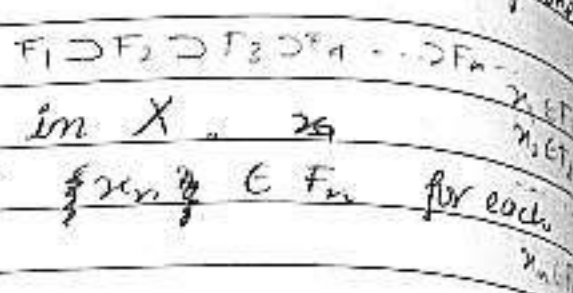 F₁ ⊃ F₂ ⊃ F₃ ⊃ F₄ ... ⊃ Fₙ ...
in X.
{xₙ} ∈ Fₙ for each
x₁ ∈ F
x₂ ∈ F
xₙ ∈ F